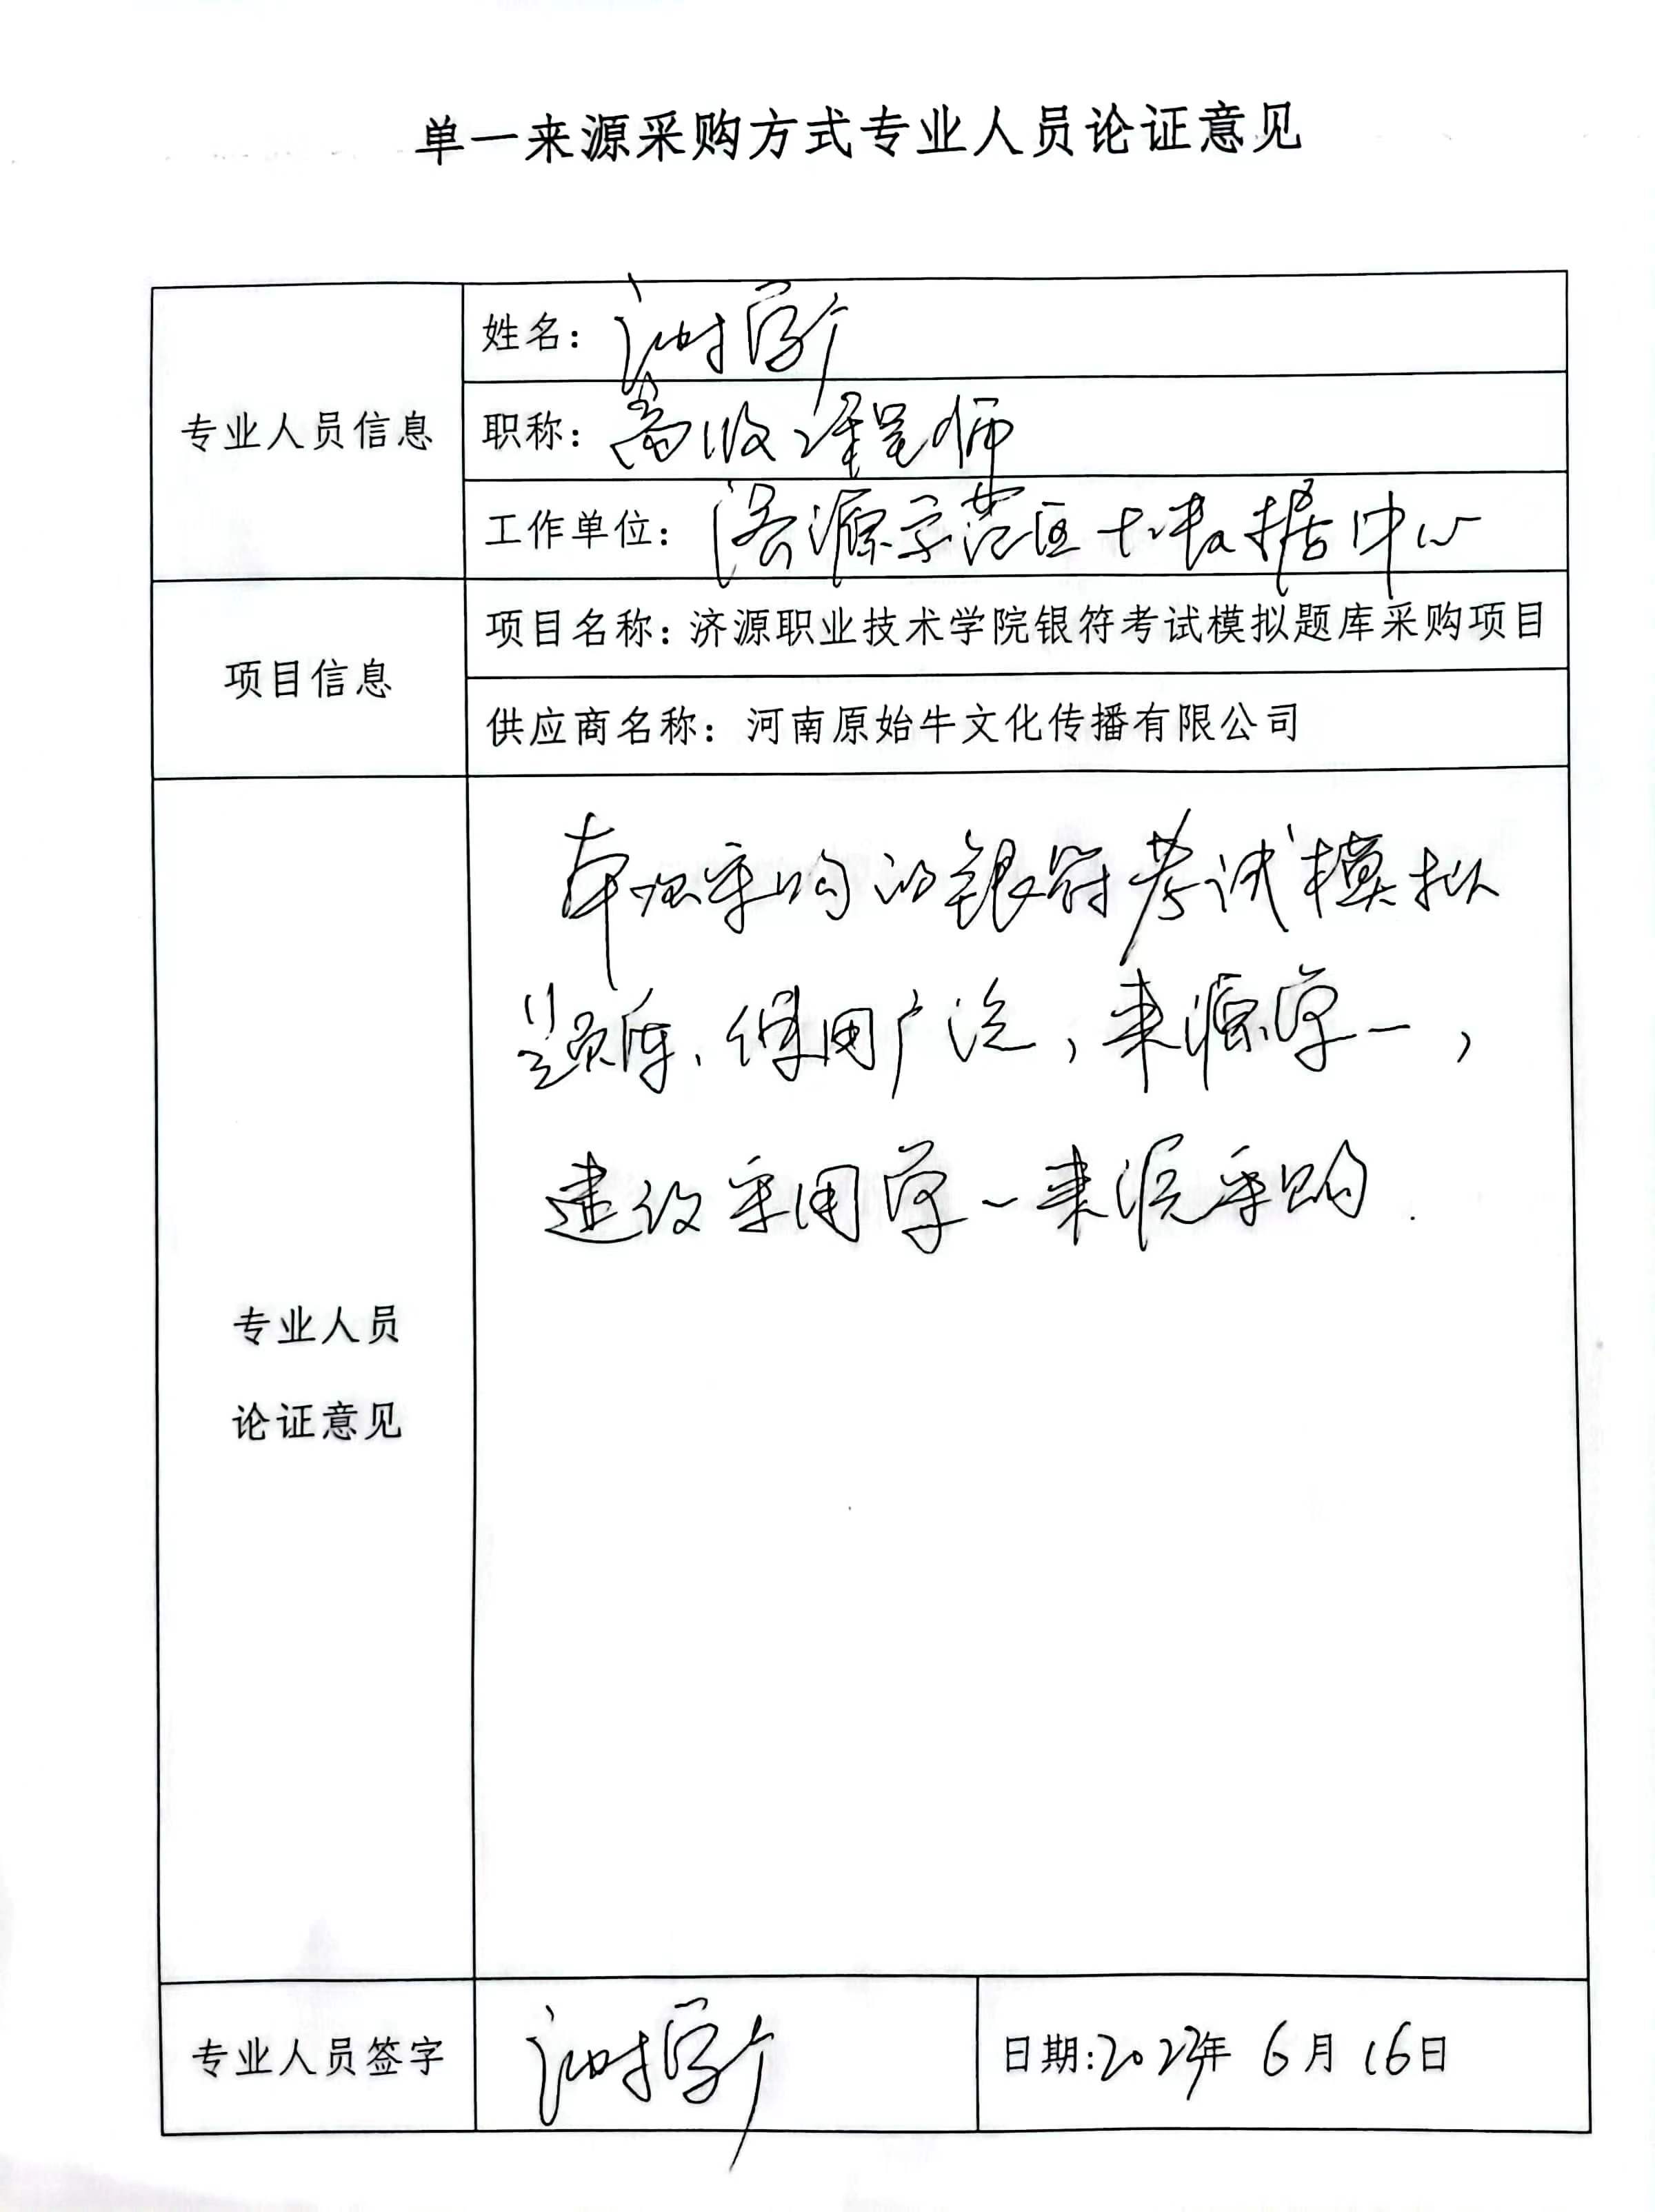 单一来源采购方式专业人员论证意见
专业人员信息
姓名：
职称：高级工程师
工作单位：济源示范区大数据中心
项目信息
项目名称：济源职业技术学院银符考试模拟题库采购项目
供应商名称：河南原始牛文化传播有限公司
专业人员
论证意见
本次采购的银符考试模拟
题库、使用广泛，来源单一，
建议采用单一来源采购.
专业人员签字
日期:2023年 6月 16日